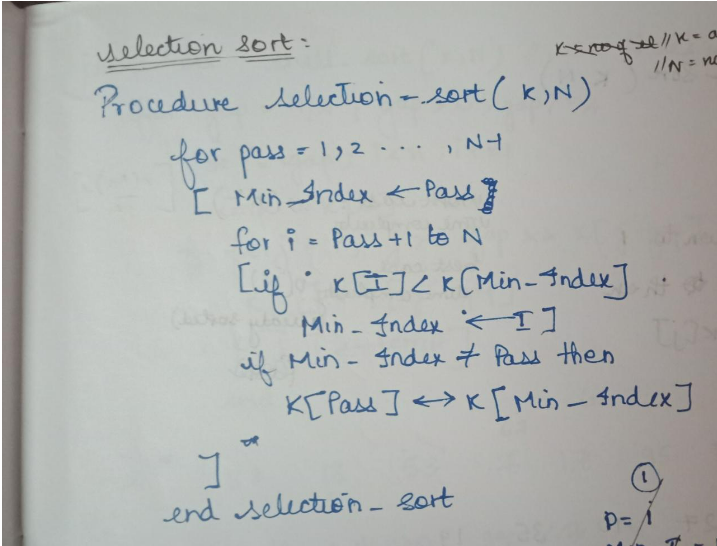 selection sort:
//K = a
//N = no
Procedure selection-sort(K,N)
for pass = 1,2 ...., N-1
[ Min_Index ← Pass
for i = Pass+1 to N
[if K[I] < K[Min-Index]
Min-Index ← I ]
if Min-Index ≠ Pass then
K[Pass] ↔ K[Min-Index]
]
end selection-sort
1
P= 1